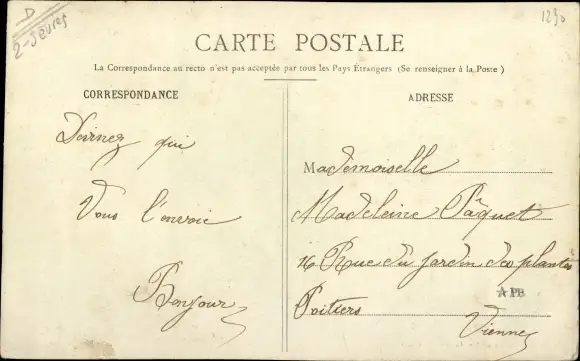 D
2-Sèvres
1230
CARTE POSTALE
La Correspondance au recto n'est pas acceptée par tous les Pays Étrangers (Se renseigner à la Poste)
CORRESPONDANCE
Devinez qui
Vous l'envoie
Bonjour
ADRESSE
Mademoiselle
Madeleine Pâquet
16 Rue du jardin des plantes
Poitiers
APB
Vienne